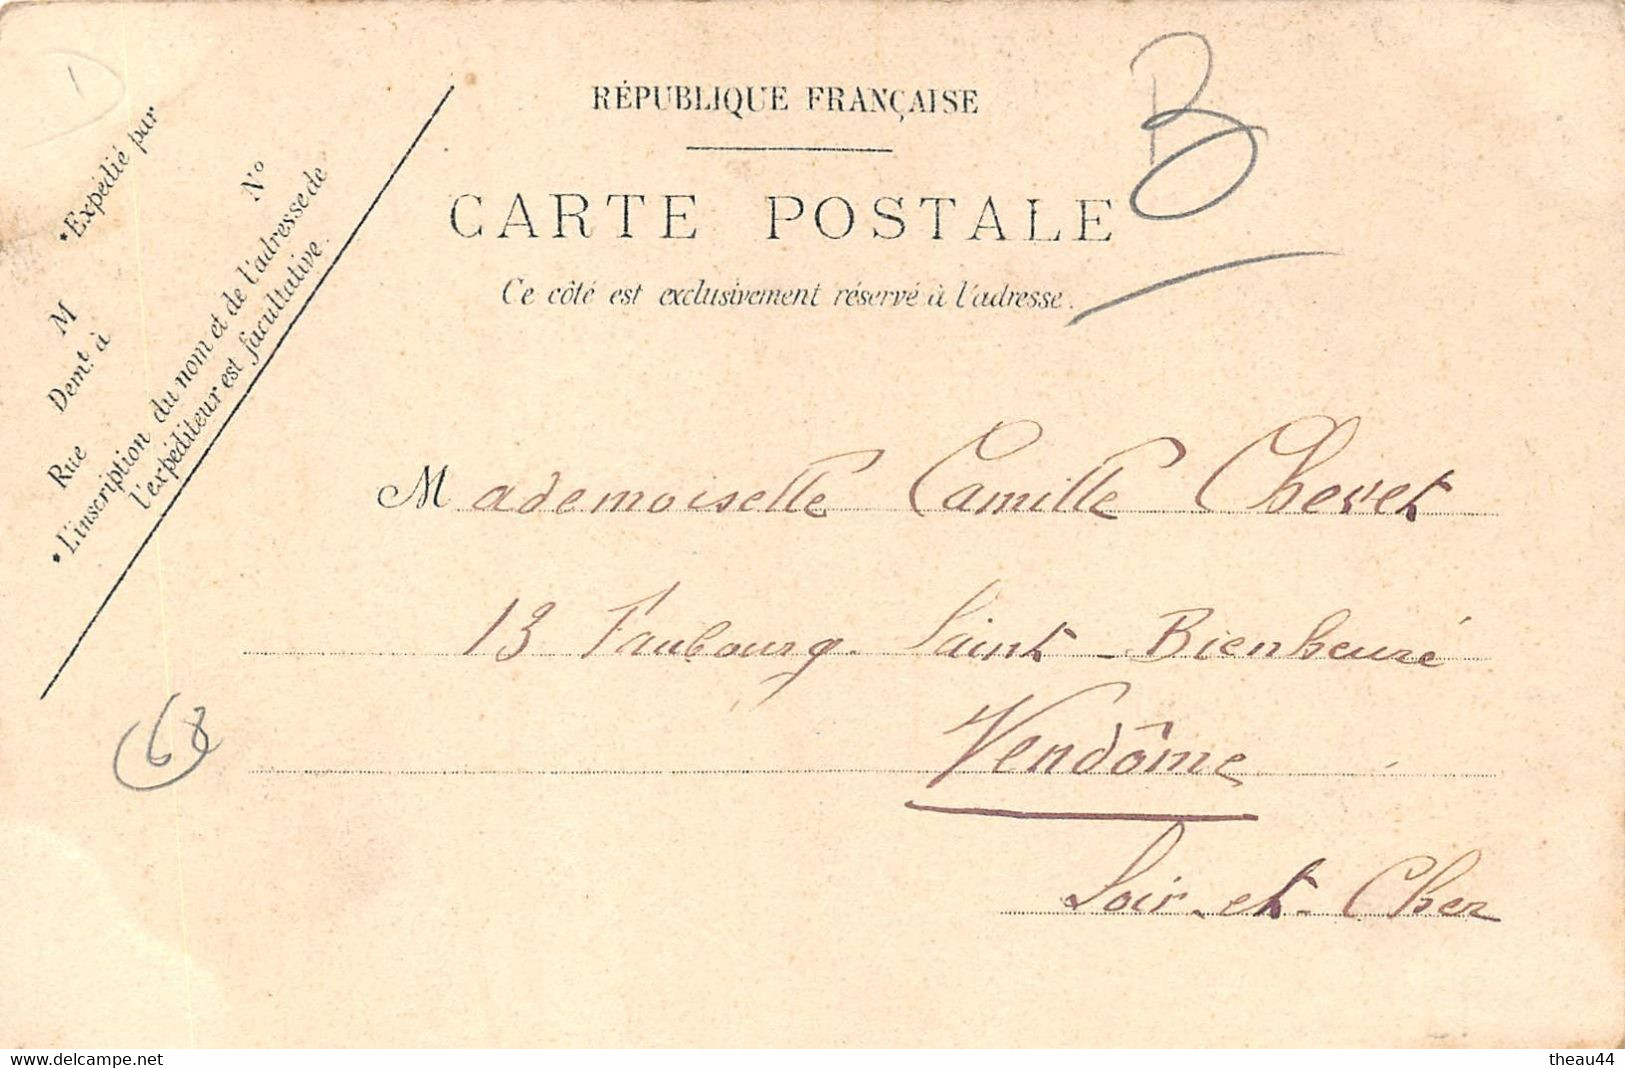 RÉPUBLIQUE FRANÇAISE
CARTE POSTALE
Ce côté est exclusivement réservé à l'adresse.
*Expédié par
M
Demt. à
Rue
No
*L'inscription du nom et de l'adresse de
l'expéditeur est facultative.
B
Mademoiselle Camille Chevet
13 Faubourg Saint-Bienheuré
Vendôme
Loir-et-Cher
68
www.delcampe.net
theau44